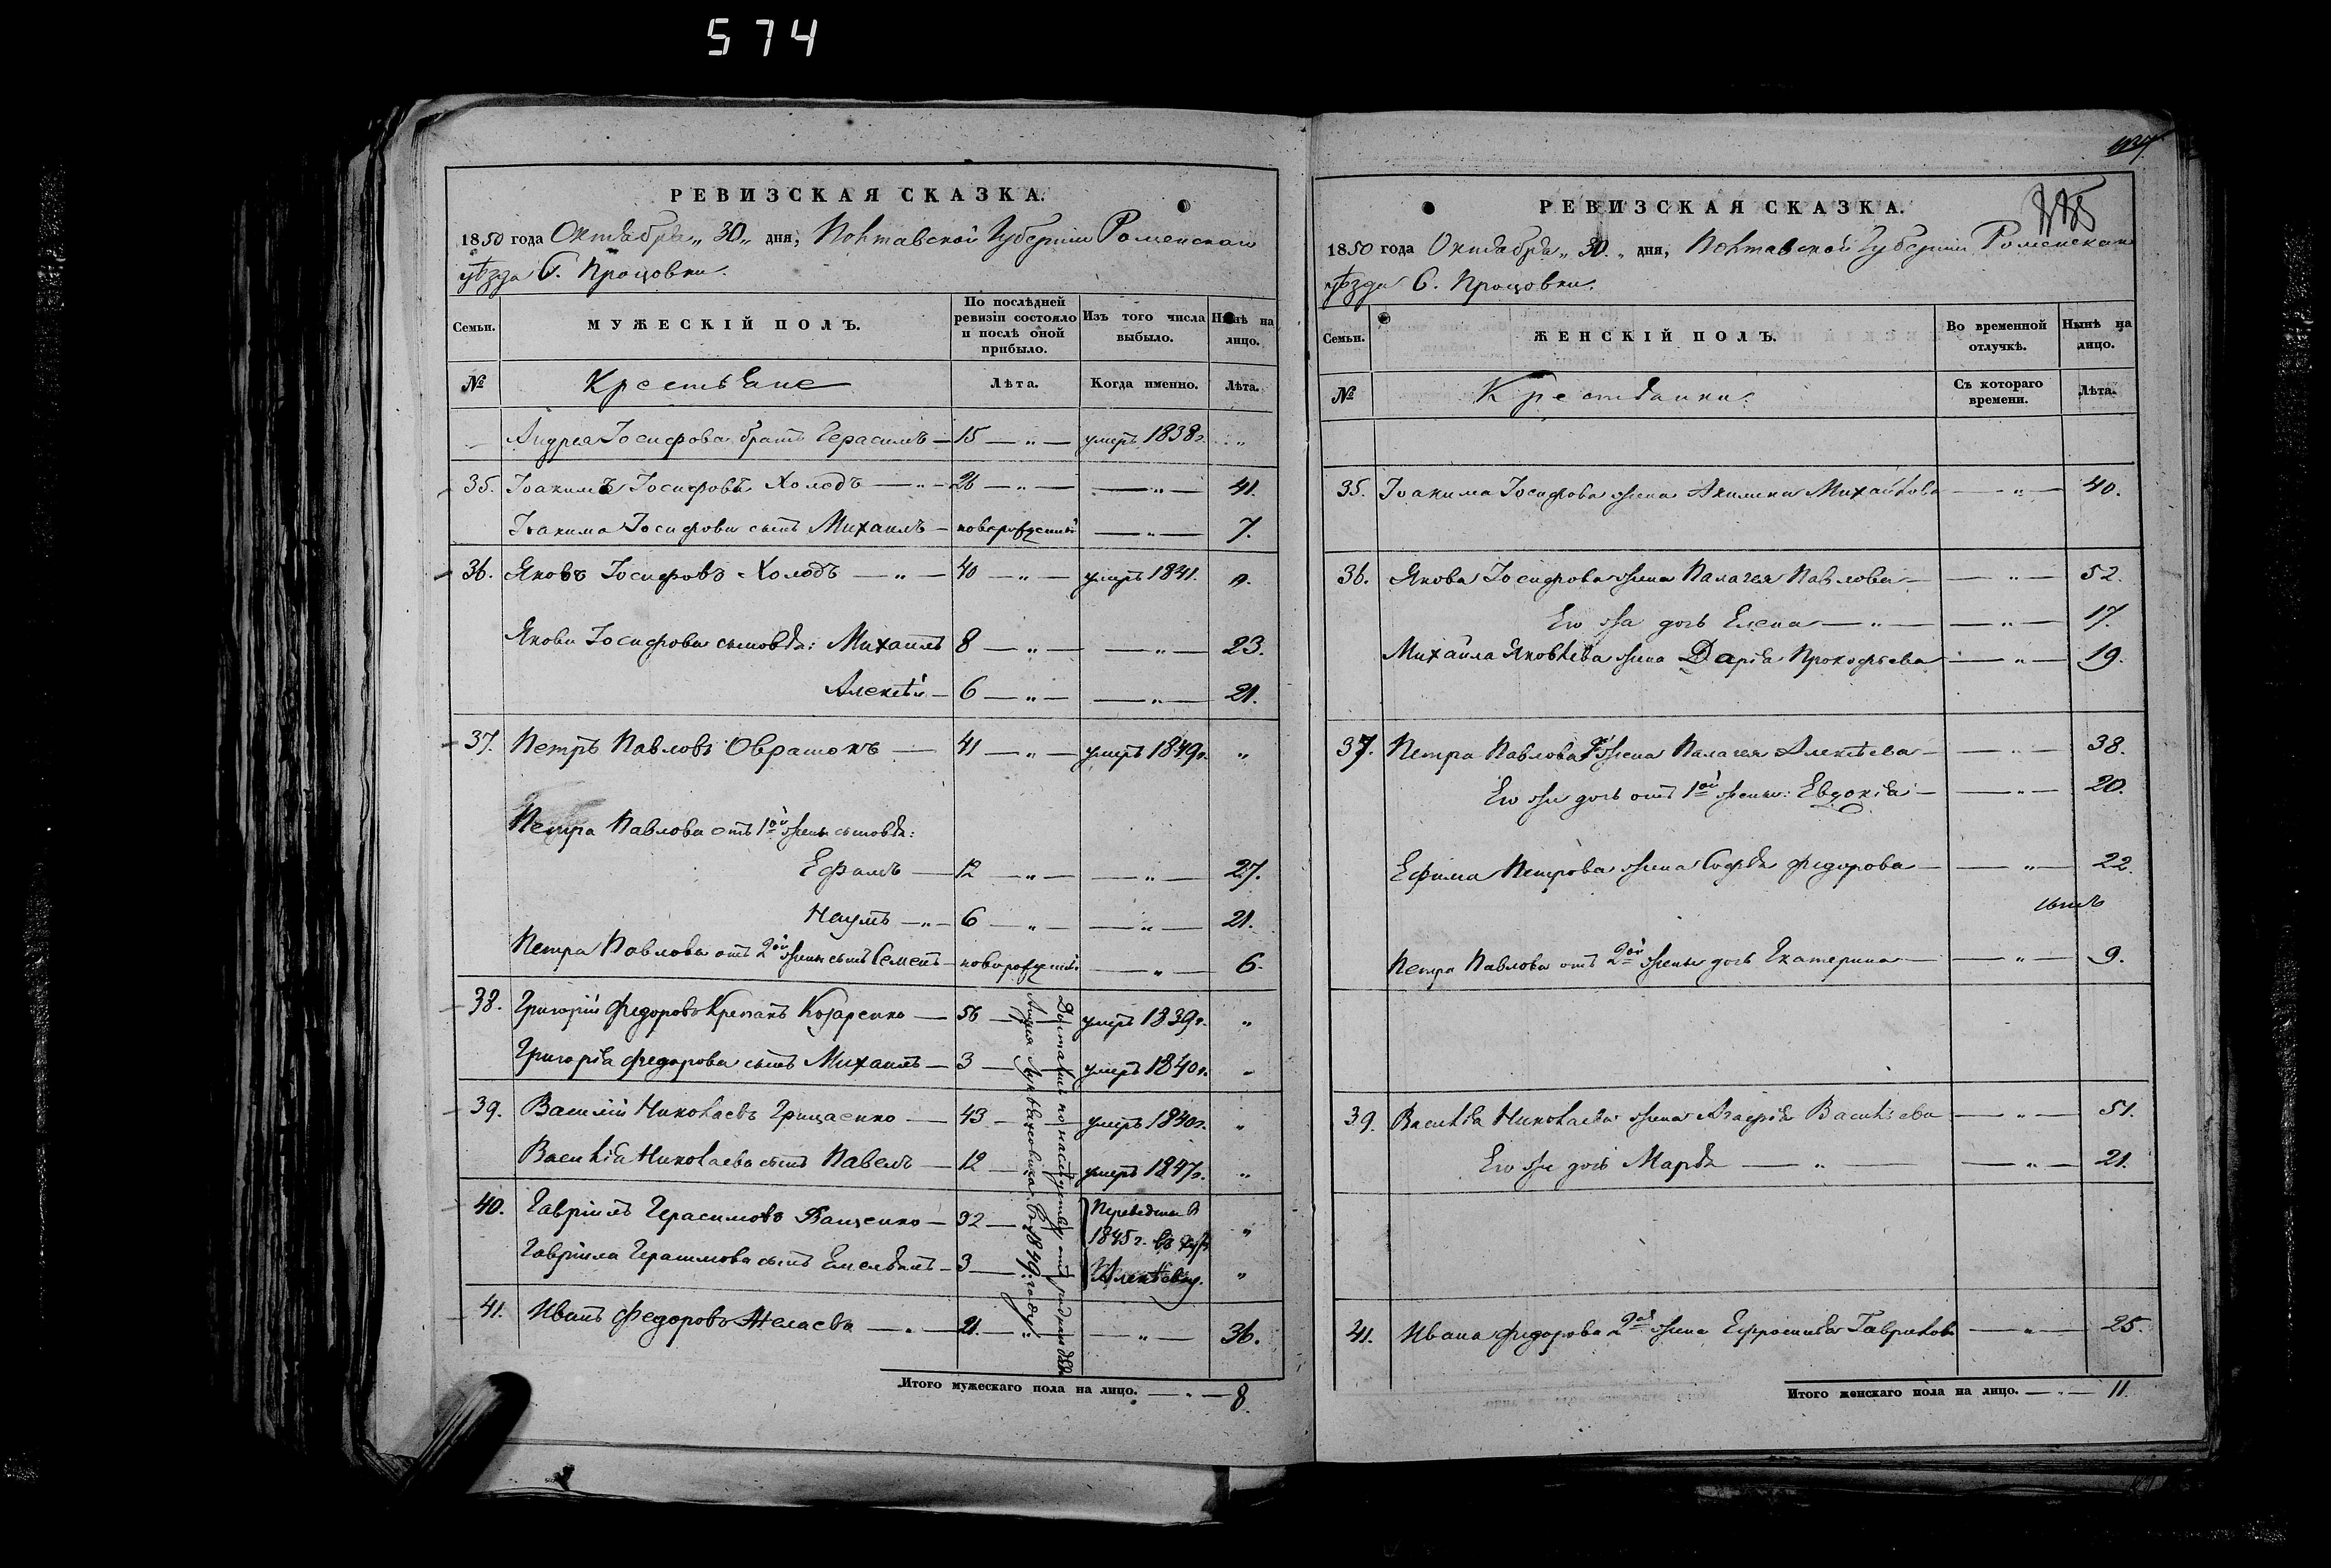 574
РЕВИЗСКАЯ СКАЗКА.
1850 года Октября „ 30 „ дня, Полтавской Губернии Роменскаго
уѣзда С. Процовки.
Семьи.
МУЖЕСКІЙ ПОЛЪ.
По послѣдней ревизіи состояло и послѣ оной прибыло.
Изъ того числа выбыло.
Нынѣ на лицо.
№ Крестьяне Лѣта. Когда именно. Лѣта.
Андрея Іосифова братъ Герасимъ — 15 — „ — умеръ 1838 г. „
35. Іоакимъ Іосифовъ Холодъ — „ — 26 — „ — — „ — 41.
Іоакима Іосифова сынъ Михаилъ — новорожденный — „ — 7.
36. Яковъ Іосифовъ Холодъ — „ — 40 — „ — умеръ 1841. „
Якова Іосифова сыновья: Михаилъ 8 — „ — — „ — 23.
Алексѣй — 6 — „ — — „ — 21.
37. Петръ Павловъ Оврашокъ — 41 — „ — умеръ 1849 г. „
Петра Павлова отъ 1ой жены сыновья:
Ефимъ — 12 — „ — — „ — 27.
Наумъ — „ — 6 — „ — — „ — 21.
Петра Павлова отъ 2ой жены сынъ Семенъ — новорожденный — „ — 6.
38. Григорій Федоровъ Козаренко — 56 — умеръ 1839 г. „
Григорія Федорова сынъ Михаилъ — 3 — умеръ 1840 г. „
39. Василій Николаевъ Грицаенко — 43 — умеръ 1840 г. „
Василія Николаева сынъ Павелъ — 12 — умеръ 1847 г. „
40. Гавріилъ Герасимовъ Ващенко — 32 — Переведены в „
1845 г. въ
Гавріила Герасимова сынъ Емельянъ — 3 — „
41. Иванъ Федоровъ — „ — 21. — — „ — 36.
Достались по наслѣдству отъ
Андрея 1849: году:
Итого мужескаго пола на лицо. — „ — 8.
РЕВИЗСКАЯ СКАЗКА.
1850 года Октября „ 30. „ дня, Полтавской Губерніи Роменскаго
уѣзда С. Процовки.
Семьи.
ЖЕНСКІЙ ПОЛЪ.
Во временной отлучкѣ.
Нынѣ на лицо.
№ Крестьянки. Съ котораго времени. Лѣта.
35. Іоакима Іосифова жена Акилина Михайлова — „ — 40.
36. Якова Іосифова жена Палагея Павлова — — „ — 52.
Его жа дочь Елена — „ — — „ — 17.
Михайла Яковлева жена Дарія Прокофьева — „ — 19.
37. Петра Павлова жена Палагея Алексѣева — — „ — 38.
Его же дочь отъ 1ой жены: Евдокія — — „ — 20.
Ефима Петрова жена Софья Федорова — — „ — 22.
Петра Павлова отъ 2ой жены дочь Екатерина — — „ — 9.
39. Василія Николаева жена Агафія Васильева — „ — 51.
Его же дочь Марья — „ — — „ — 21.
41. Ивана Федорова 2ая жена Ефросинія Гаврилова — „ — 25.
Итого женскаго пола на лицо. — „ — 11.